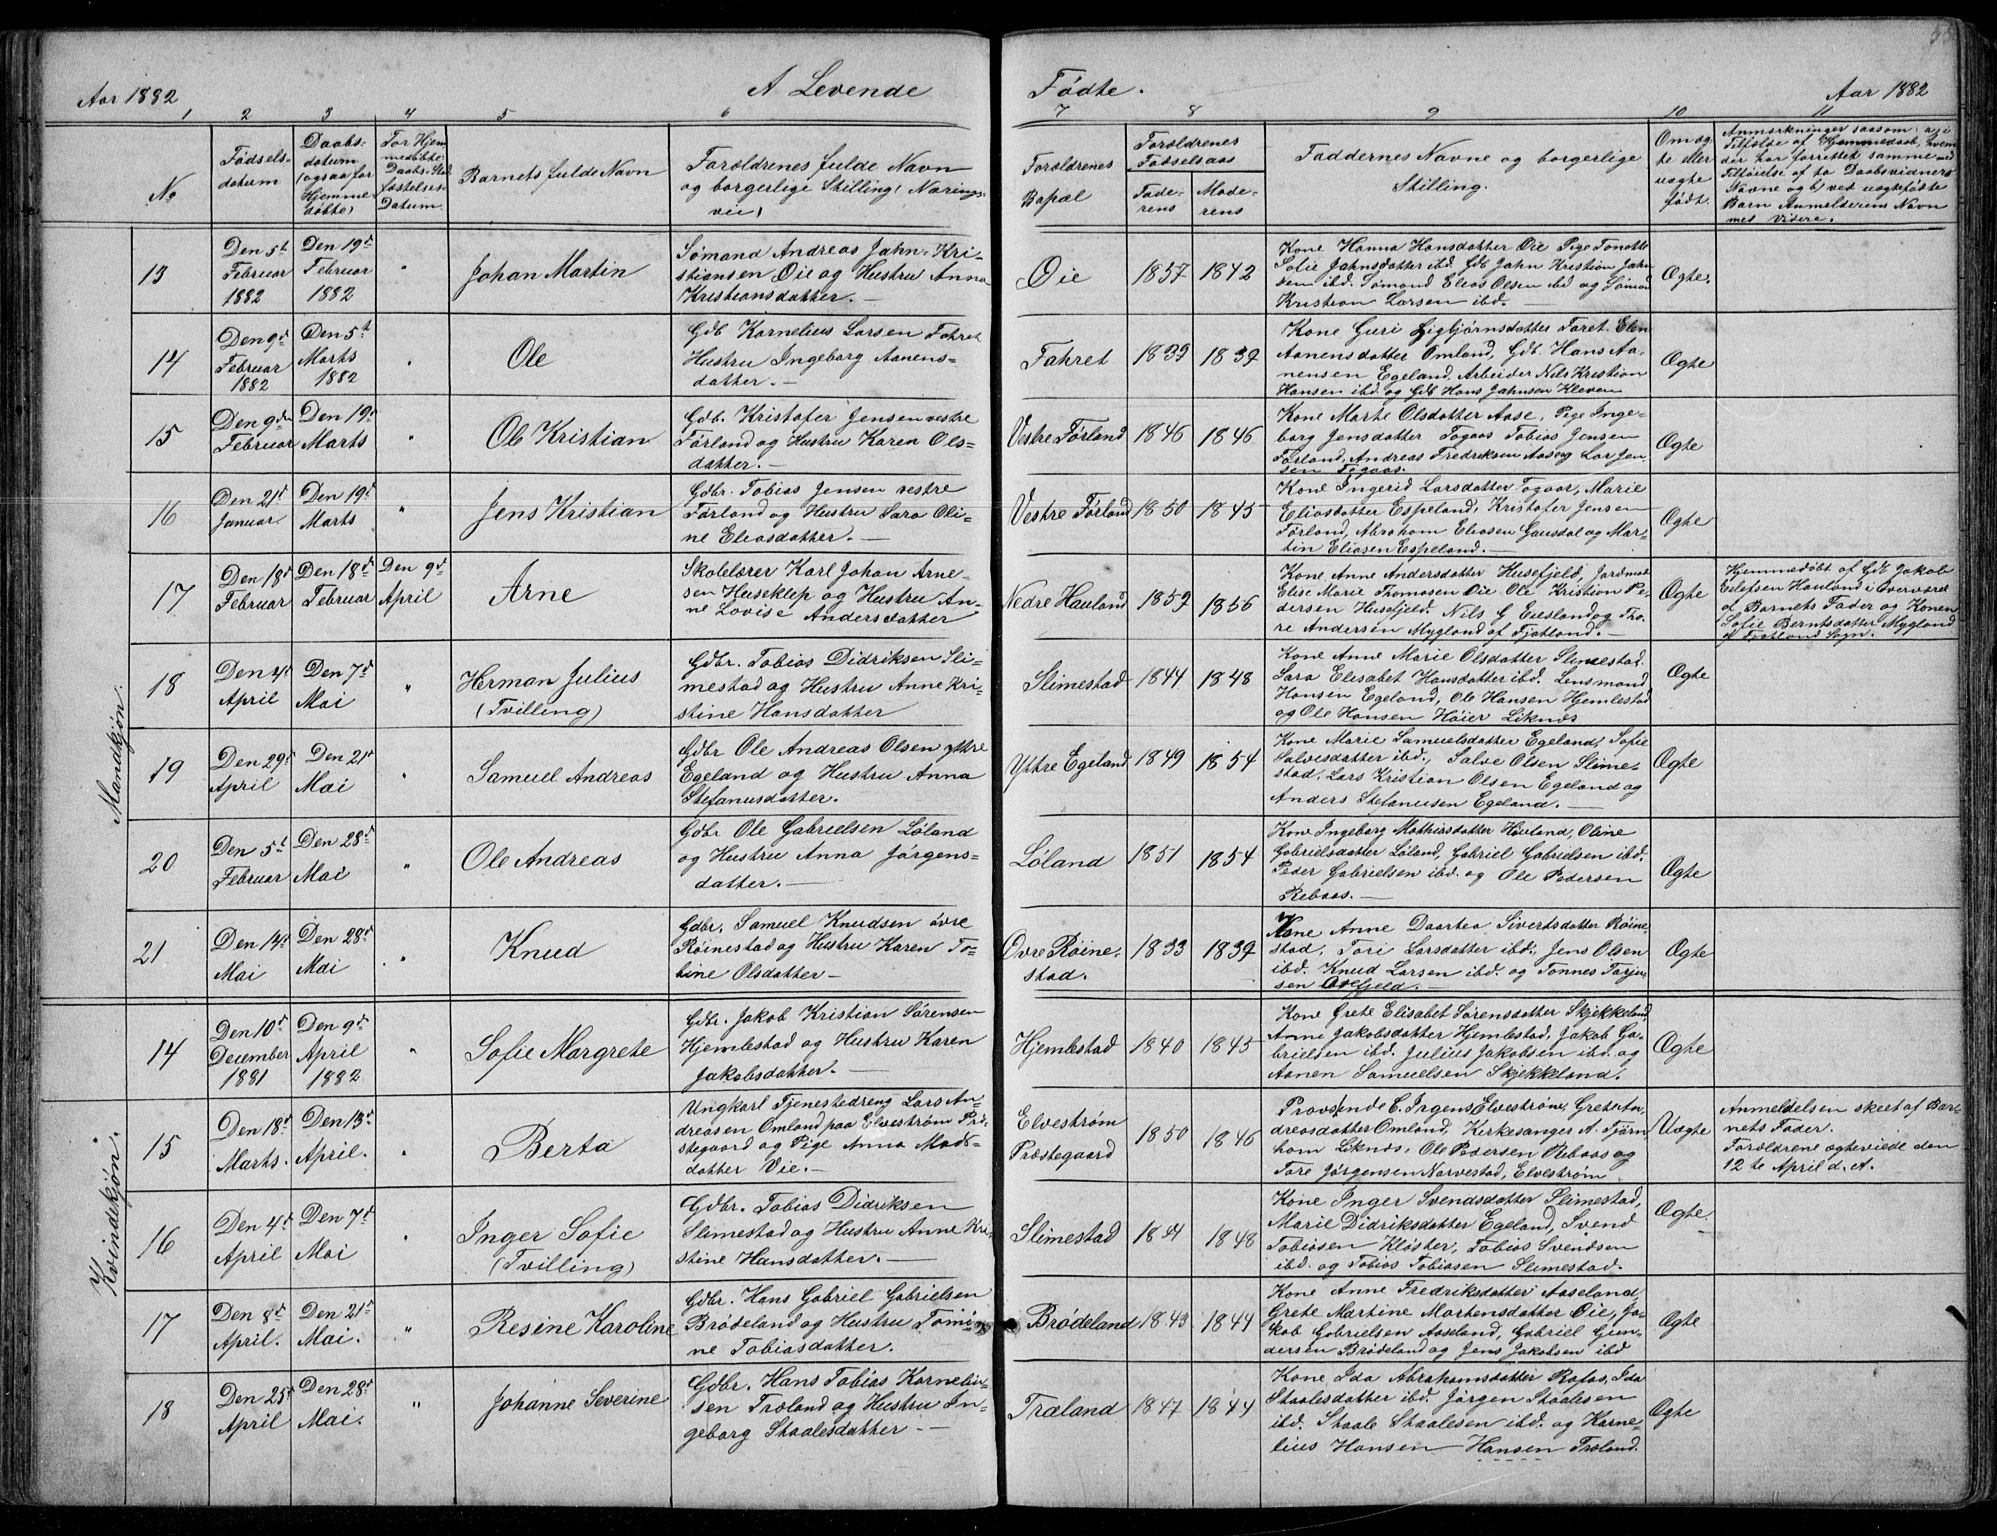 Aar 1882
A Levende
Fødte.
Aar 1882
1 2 3 4 5 6 7 8 9 10 11
No
Fødsels-
datum
Daabs-
datum
(ogsaa for
Hjemme-
døbte)
For Hjem
medøbte
Daabs Stad
fæstelses-
Datum.
Barnets fulde Navn
Forældrenes fulde Navn
og borgerlige Stilling (Nærings-
vei)
Forældrenes
Bopæl
Forældrenes
Fødselsaar
Fade-
rens
Mode-
rens
Faddernes Navne og borgerlige
Stilling.
Om æg
te eller
uægte
født.
Anmærkninger saasom: a, i
Tilfælde af Hjemmedaab, hvem
der har forrettet samme med
Tilføielse af to Daabsvidners
Navne og b, ved uægtefødte
Barn Anmelderens Navn
med videre.
Mandkjøn.
13
Den 5t
Februar
1882
Den 19d
Februar
1882
"
Johan Martin
Sømand Andreas Jahn Kri-
stiansen Øie og Hustru Anna
Kristiansdatter. —
Øie
1857
1842
Kone Hanna Hansdatter Øie Pige Tomette
Sofie Jahnsdatter ibd. Gdb Jahn Kristian Jahn
sen ibd. Sømand Elias Olsen ibd og Sømand
Kristian Larsen ibd. —
Ægte.
14
Den 9d
Februar
1882
Den 5t
Marts
1882
"
Ole
Gdb Kornelius Larsen Fahret
Hustru Ingeborg Aanens-
datter. —
Fahret
1839
1839
Kone Guri Sigbjørnsdatter Faret. Elen
Aanensdatter Omland, Gdb. Hans Aa-
nensen Egeland. Arbeider Nils Kristian
Hansen ibd. og Gdb Hans Jahnsen Kleven
Ægte
15
Den 9de
Februar
Den 19d
Marts
"
Ole Kristian
Gdb. Kristofer Jensen vestre
Førland og Hustru Karen Ols-
datter. —
Vestre Førland
1846
1846
Kone Marte Olsdatter Aase, Pige Inge-
borg Jensdatter Togaas Tobias Jensen
Førland, Andreas Fredriksen Aase og Lar Jen-
sen Togaas.
Ægte
16
Den 21d
Januar
Den 19d
Marts
"
Jens Kristian
Gdbr. Tobias Jensen vestre
Førland og Hustru Sara Oli-
ne Eliasdatter. —
Vestre Førland
1850
1845
Kone Ingerid Larsdatter Togaar, Marie
Eliasdatter Espeland, Kristofer Jensen
Førland, Abraham Eliasen Gausdal og Mar-
tin Eliasen Espeland. —
Ægte
17
Den 18d
Februar
Den 18d
Februar
Den 9d
April
Arne
Skolelærer Karl Johan Arne-
sen Huseklep og Hustru An-
ne Lovise Andersdatter
Nedre Hauland
1859
1856
Kone Anne Andersdatter Husefjeld, Jordmod
Elise Marie Thomasen Øie Ole Kristian Pe-
dersen Husefjeld. Nils G Eieslandog Tho-
re Andersen Mygland af Fjotland. —
Ægte
Hjemmedøbt af Gdb Jakob
Eilefsen Hauland i Overværd
af Barnets Fader og Konen
Sofie Berntsdatter Mygland
af Fjotland Sogn.
18
Den 4d
April
Den 7d
Mai
"
Herman Julius
(Tvilling)
Gdbr. Tobias Didriksen Sli-
mestad og Hustru Anne Kri-
stine Hansdatter
Slimestad
1844
1848
Kone Anne Marie Olsdatter Slimestad.
Sara Elisabet Hansdatter ibd. Lensmand
Hansen Egeland, Ole Hansen Hjemlestad
og Ole Hansen Høier Liknes
Ægte
19
Den 29d
April
Den 21d
Mai
"
Samuel Andreas
Gdbr Ole Andreas Olsen yttre
Egeland og Hustru Anna
Stefanusdatter.
Yttre Egeland
1849
1854
Kone Marie Samuelsdatter Egeland, Sofie
Salvesdatter ibd., Salve Olsen Slime-
stad, Lars Kristian Olsen Egeland og
Anders Stefanusen Egeland. —
Ægte
20
Den 5t
Februar
Den 28d
Mai
"
Ole Andreas
Gdbr Ole Gabrielsen Løland
og Hustru Anna Jørgens-
datter. —
Løland
1851
1854
Kone Ingeborg Mathiasdatter Hauland, Oline
Gabrielsdatter Løland, Gabriel Gabrielsen ibd.
Peder Gabrielsen ibd. og Ole Pedersen
Rebaas. —
Ægte
21
Den 14d
Mai
Den 28d
Mai
"
Knud
Gdbr. Samuel Knudsen øvre
Røinestad og Hustru Karen To-
bine Olsdatter —
Øvre Røine-
stad.
1833
1839
Kone Anne Daartea Sivertsdatter Røine
stad, Tori Larsdatter ibd., Jens Olsen
ibd. Knud Larsen ibd. og Tønnes Tarjei
sen —
Ægte
Kvindekjøn.
14
Den 10d
December
1881
Den 9d
April
1882
"
Sofie Margrete
Gdbr. Jakob Kristian Sørensen
Hjemlestad og Hustru Karen
Jakobsdatter. —
Hjemlestad
1840
1845
Kone Grete Elisabet Sørensdatter Skjekkeland
Anne Jakobsdatter Hjemlestad, Jakob Ga-
brielsen ibd. Julius Jakobsen ibd. og
Aanen Samuelsen Skjekkeland.
Ægte
15
Den 18d
Marts.
Den 13d
April.
"
Berta
Ungkarl Tjenestedreng Lars An-
dreasen Omland paa Elvestrøm Præ-
stegaard og Pige Anna Mads-
datter Vie. —
Elvestrøm
Præstegaard
1850
1846
Provsende C. Irgens Elvestrøm, Grete An-
dreasdatter Omland, Kirkesanger A. Tjørn
hom Liknes, Ole Pedersen Rebaas og
Tore Jørgensen Narvestad, Elvestrøm
Uægte
Anmeldelsen skeet af Bar-
nets Fader.
Forældrene ægteviede den
12te April d. A.
16
Den 4d
April
Den 7d
Mai
"
Inger Sofie
(Tvilling)
Gdbr. Tobias Didriksen
Slimestad og Hustru Anne Kri
stine Hansdatter. —
Slimestad
1844
1848
Kone Inger Svendsdatter Slimestad,
Marie Didriksdatter Egeland, Svend
Tobiasen Kloster, Tobias Svendsen
ibd. og Tobias Tobiasen Slimestad.
Ægte
17
Den 8d
April.
Den 21d
Mai.
"
Resine Karoline
Gdbr. Hans Gabriel Gabrielsen
Brødeland og Hustru Tomi-
ne Tobiasdatter.
Brødeland
1843
1844
Kone Anne Fredriksdatter Aaseland,
Grete Martine Mortensdatter Øie, Ja-
kob Gabrielsen Aaseland, Gabriel Gun-
dersen Brødeland og Jens Jakobsen ibd
Ægte
18
Den 25d
April
Den 28d
Mai.
"
Johanne Severine
Gdbr. Hans Tobias Korneliu-
sen Træland og Hustru In-
geborg Staalesdatter —
Træland
1847
1844
Kone Ida Abrahamsdatter Rafos, Ida
Staalesdatter ibd. Jørgen Staalesen
ibd. Staale Staalesen ibd. og Korne-
lius Hansen — Hansen Træland.
Ægte